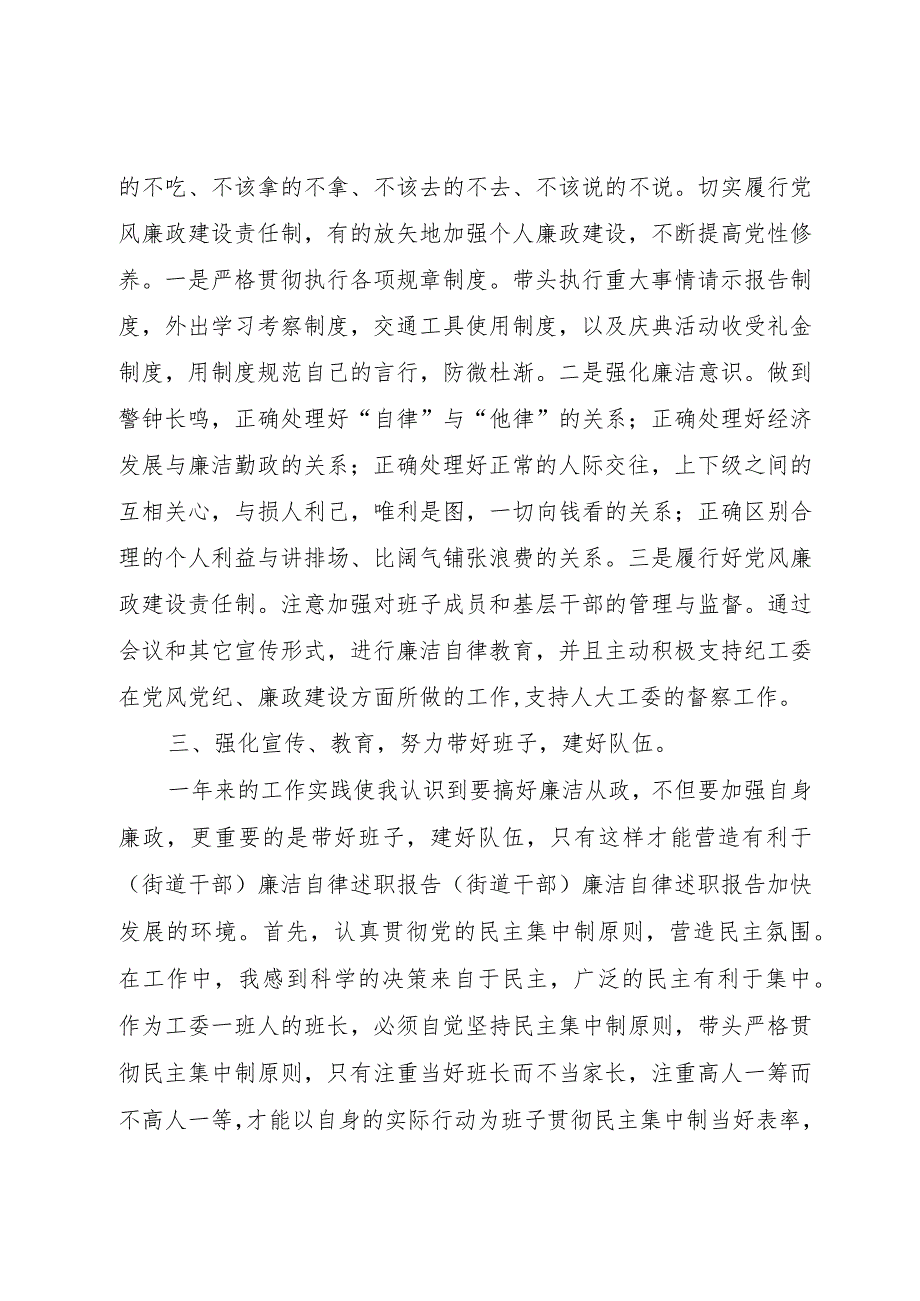 的不吃、不该拿的不拿、不该去的不去、不该说的不说。切实履行党
风廉政建设责任制，有的放矢地加强个人廉政建设，不断提高党性修
养。一是严格贯彻执行各项规章制度。带头执行重大事情请示报告制
度，外出学习考察制度，交通工具使用制度，以及庆典活动收受礼金
制度，用制度规范自己的言行，防微杜渐。二是强化廉洁意识。做到
警钟长鸣，正确处理好“自律”与“他律”的关系；正确处理好经济
发展与廉洁勤政的关系；正确处理好正常的人际交往，上下级之间的
互相关心，与损人利己，唯利是图，一切向钱看的关系；正确区别合
理的个人利益与讲排场、比阔气铺张浪费的关系。三是履行好党风廉
政建设责任制。注意加强对班子成员和基层干部的管理与监督。通过
会议和其它宣传形式，进行廉洁自律教育，并且主动积极支持纪工委
在党风党纪、廉政建设方面所做的工作,支持人大工委的督察工作。
三、强化宣传、教育，努力带好班子，建好队伍。
一年来的工作实践使我认识到要搞好廉洁从政，不但要加强自身
廉政，更重要的是带好班子，建好队伍，只有这样才能营造有利于
（街道干部）廉洁自律述职报告（街道干部）廉洁自律述职报告加快
发展的环境。首先，认真贯彻党的民主集中制原则，营造民主氛围。
在工作中，我感到科学的决策来自于民主，广泛的民主有利于集中。
作为工委一班人的班长，必须自觉坚持民主集中制原则，带头严格贯
彻民主集中制原则，只有注重当好班长而不当家长，注重高人一筹而
不高人一等,才能以自身的实际行动为班子贯彻民主集中制当好表率，